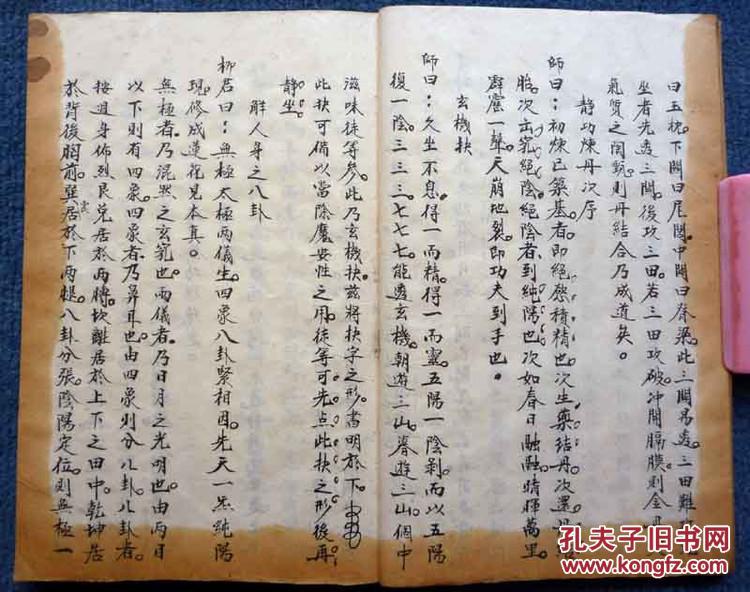 曰玉枕。下關曰尾閭。中關曰脊梁。此三關易透。三田難
坐者先透三關。後攻三田。若三田攻破。冲開膈膜。則金丹
氣質之閉觝。則丹結合乃成道矣。
靜功煉丹次序
師曰：初煉已築基者。即絕慾積精也。次生藥結丹。次還丹
胎。次出竅絕陰。絕陰者到純陽也。次如春日融融。晴暉萬里。
霹靂一聲。天崩地裂。即功夫到手也。
玄機抉
師曰：久坐不息。得一而精。得一而靈。五陽一陰剝。而以五陽
復一陰。三三三。七七七。能透玄機。朝遊三山。暮遊三山。個中
滋味徒等參。此乃玄機抉。茲將抉字之形。書明於下。
此抉可備以當除魔安性之用。徒等可先点此抉之形後再
静坐。
解人身之八卦
柳君曰：無極太極兩儀生四象八卦緊相因。先天一炁純陽
現。修成蓮花見本真。
無極者。乃混然之玄竅也。兩儀者。乃日月之光明也。由兩目
以下則有四象。四象者。乃鼻耳也。由四象則分八卦。八卦者。
按週身佈列。艮兌居於兩膊。坎離居於上下之田中。乾坤居
於背後胸前。巽震居於下两腿。八卦分張。陰陽定位。則無極一
孔夫子旧书网
kongfz.com